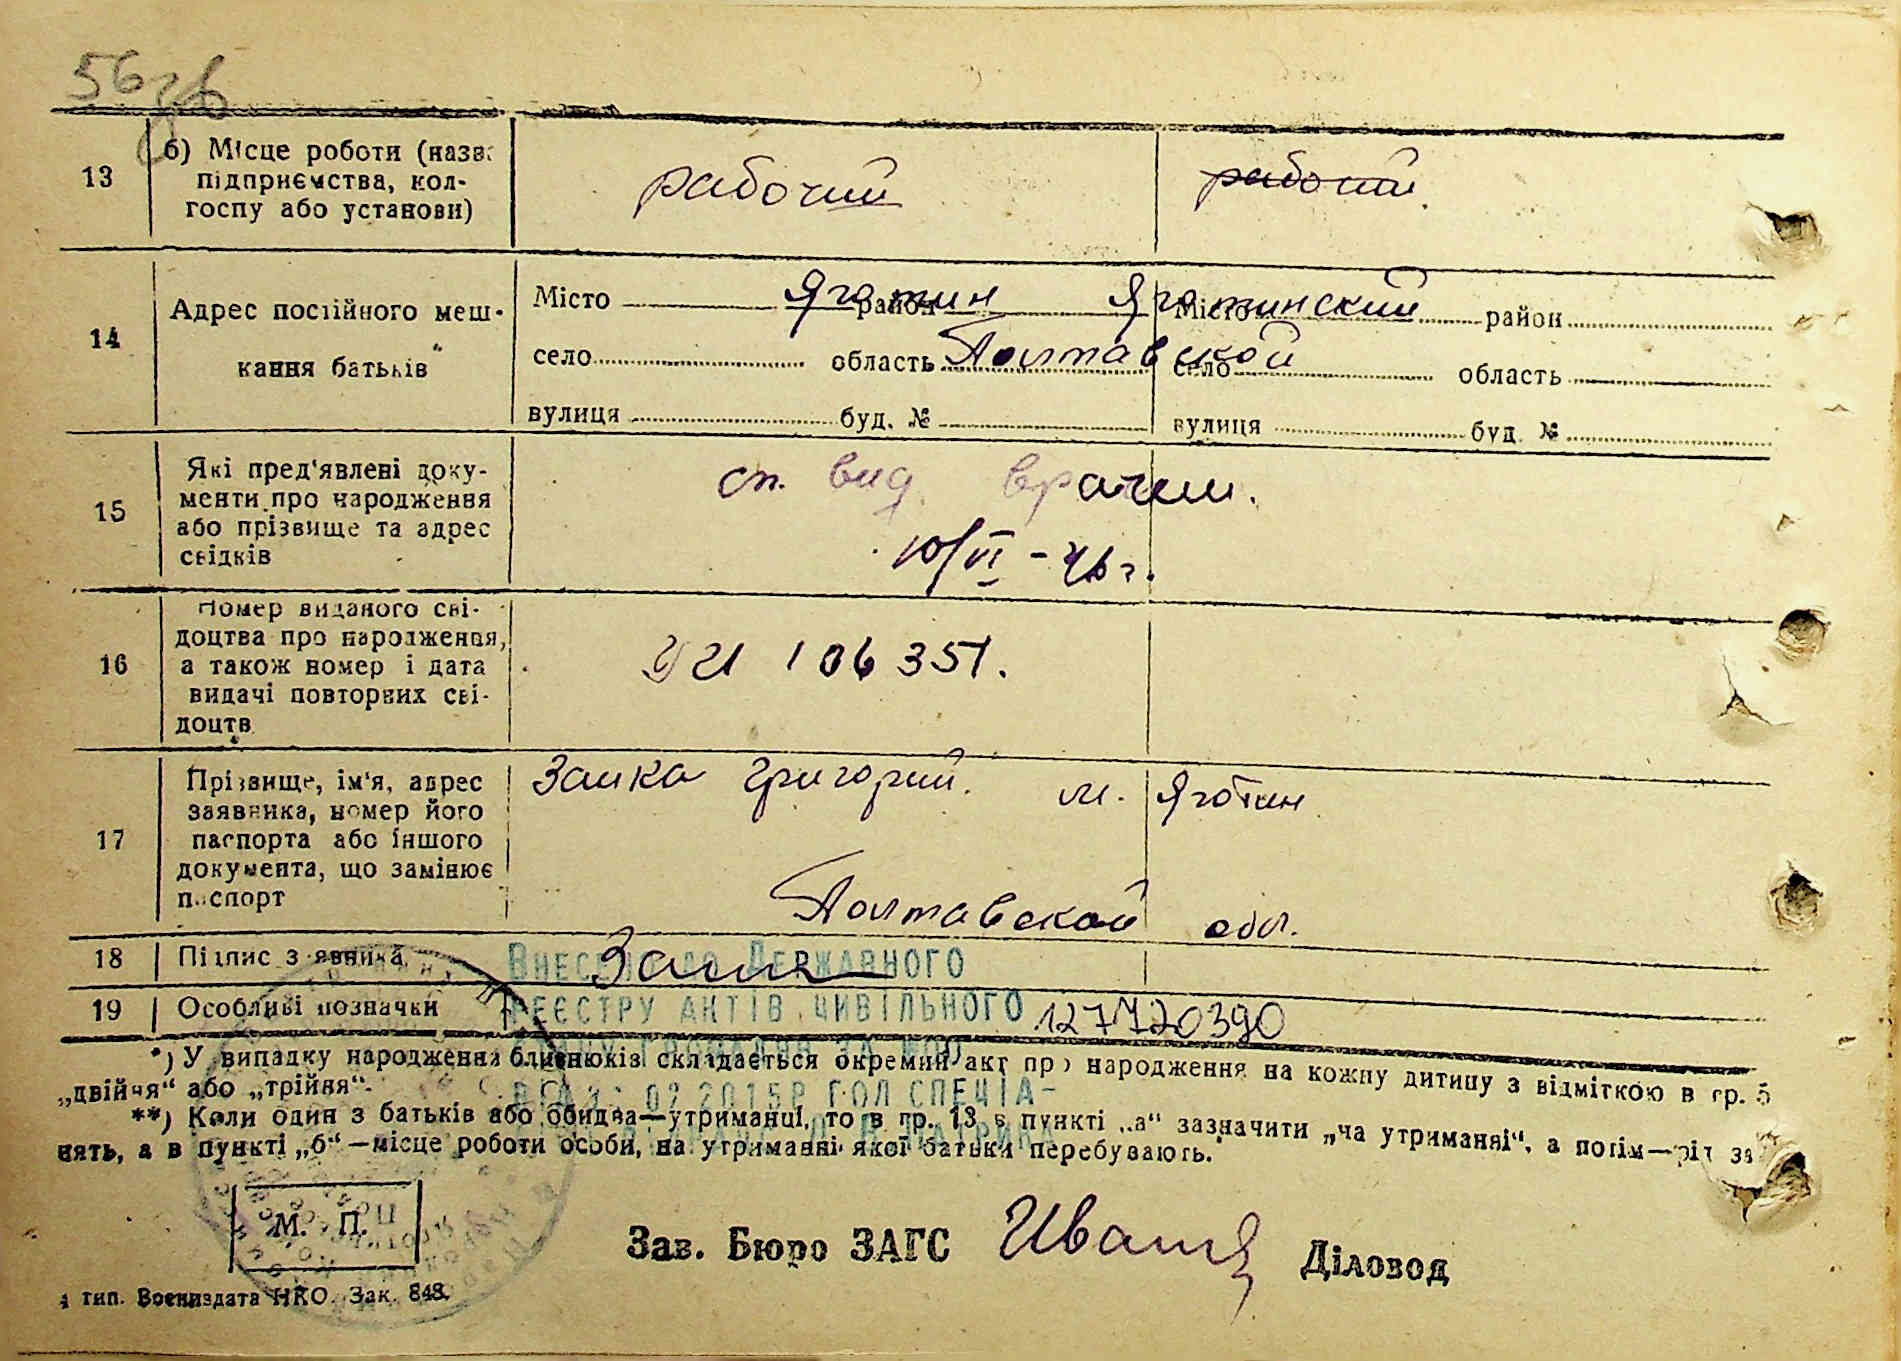 56
13
б) Місце роботи (назва
підприємства, кол-
госпу або установи)
рабочий
рабочий
14
Адрес постійного меш-
кання батьків
Місто Яготин район Яготинский
Місто район
село область Полтавской
село область
вулиця буд. №
вулиця буд. №
15
Які пред'явлені доку-
менти про народження
або прізвище та адрес
свідків
сп. вид. врачем.
10/VI - 46 г.
16
Номер виданого сві-
доцтва про народження,
а також номер і дата
видачі повторних сві-
доцтв
106351.
17
Прізвище, ім'я, адрес
заявника, номер його
паспорта або іншого
документа, що замінює
паспорт
Заика Григорий. м. Яготин
Полтавской обл.
18
Підпис заявника
Внесено до Державного
19
Особливі позначки
реєстру актів цивільного
127720390
*) У випадку народження близнюків складається окремий акт про народження на кожну дитину з відміткою в гр. 5
„двійня“ або „трійня“.
**) Коли один з батьків або обидва—утриманці, то в гр. 13 в пункті „а“ зазначити „на утриманні“, а потім—рід за
нять, а в пункті „б“—місце роботи особи, на утриманні якої батьки перебувають.
М. П.
Зав. Бюро ЗАГС
Діловод
4 тип. Воениздата НКО. Зак. 848.